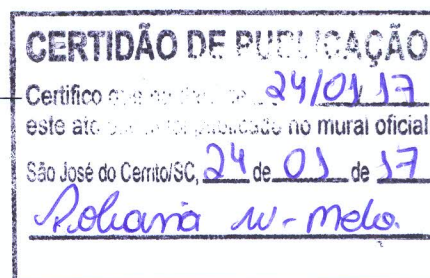 CERTIDÃO DE PUBLICAÇÃO
Certifico 24/01/17
este ato publicado no mural oficial
São José do Cerrito/SC, 24 de 01 de 17
W-Melo.